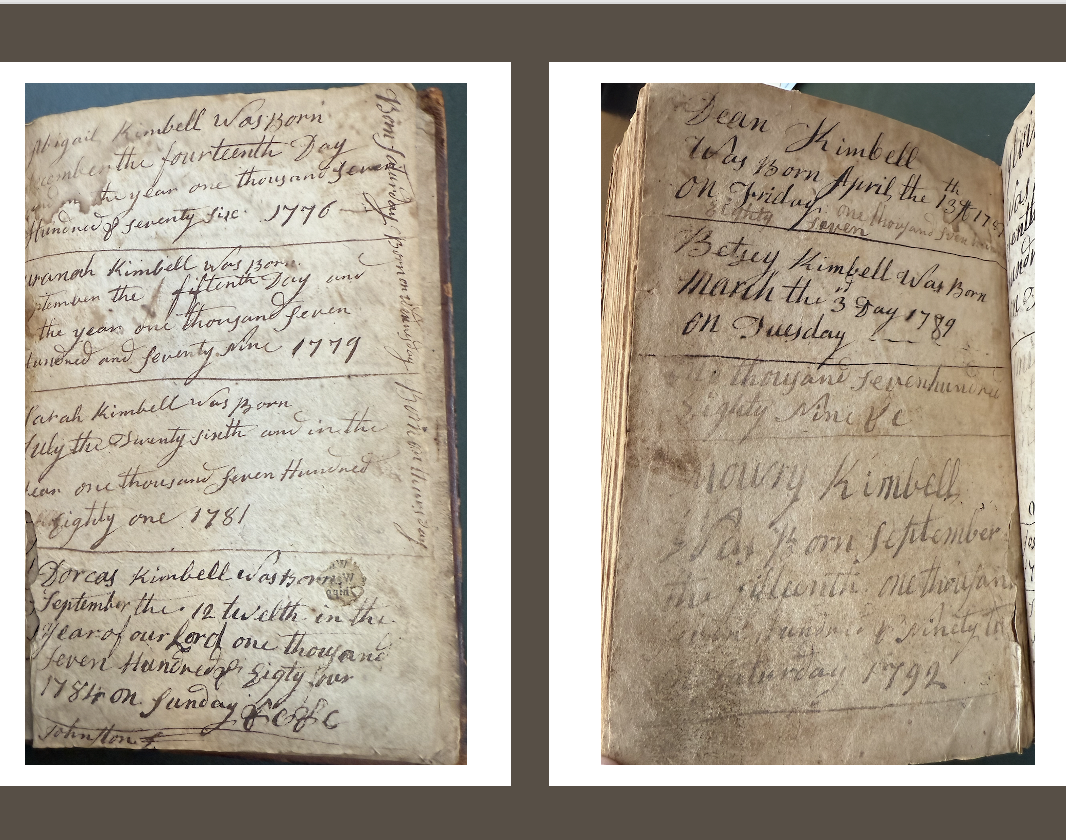 Abigail Kimbell Was Born
the fourteenth Day
the year one thousand Seven
Hundred & Seventy Six 1776
Kimbell Was Born
the fifteenth Day and
the year one thousand Seven
Hundred and Seventy Nine 1779
Sarah Kimbell Was Born
July the Twenty sixth and in the
year one thousand Seven Hundred
Eighty one 1781
Dorcas Kimbell Was Born
September the 12 twelth in the
Year of our Lord one thousand
Seven Hundred & Eigty four
1784 on Sunday &c &c
Johnston
Born Saturday
Born on
Born on Thursday
Dean Kimbell
Was Born April the 13th
ON Friday one thousand Seven
Eighty Seven
Betsey Kimbell Was Born
March the 3 Day 1789
ON Tuesday
thousand Seven hundred
Eighty Nine &c
Mowry Kimbell
Was Born September
the one thousand
ninety
1792